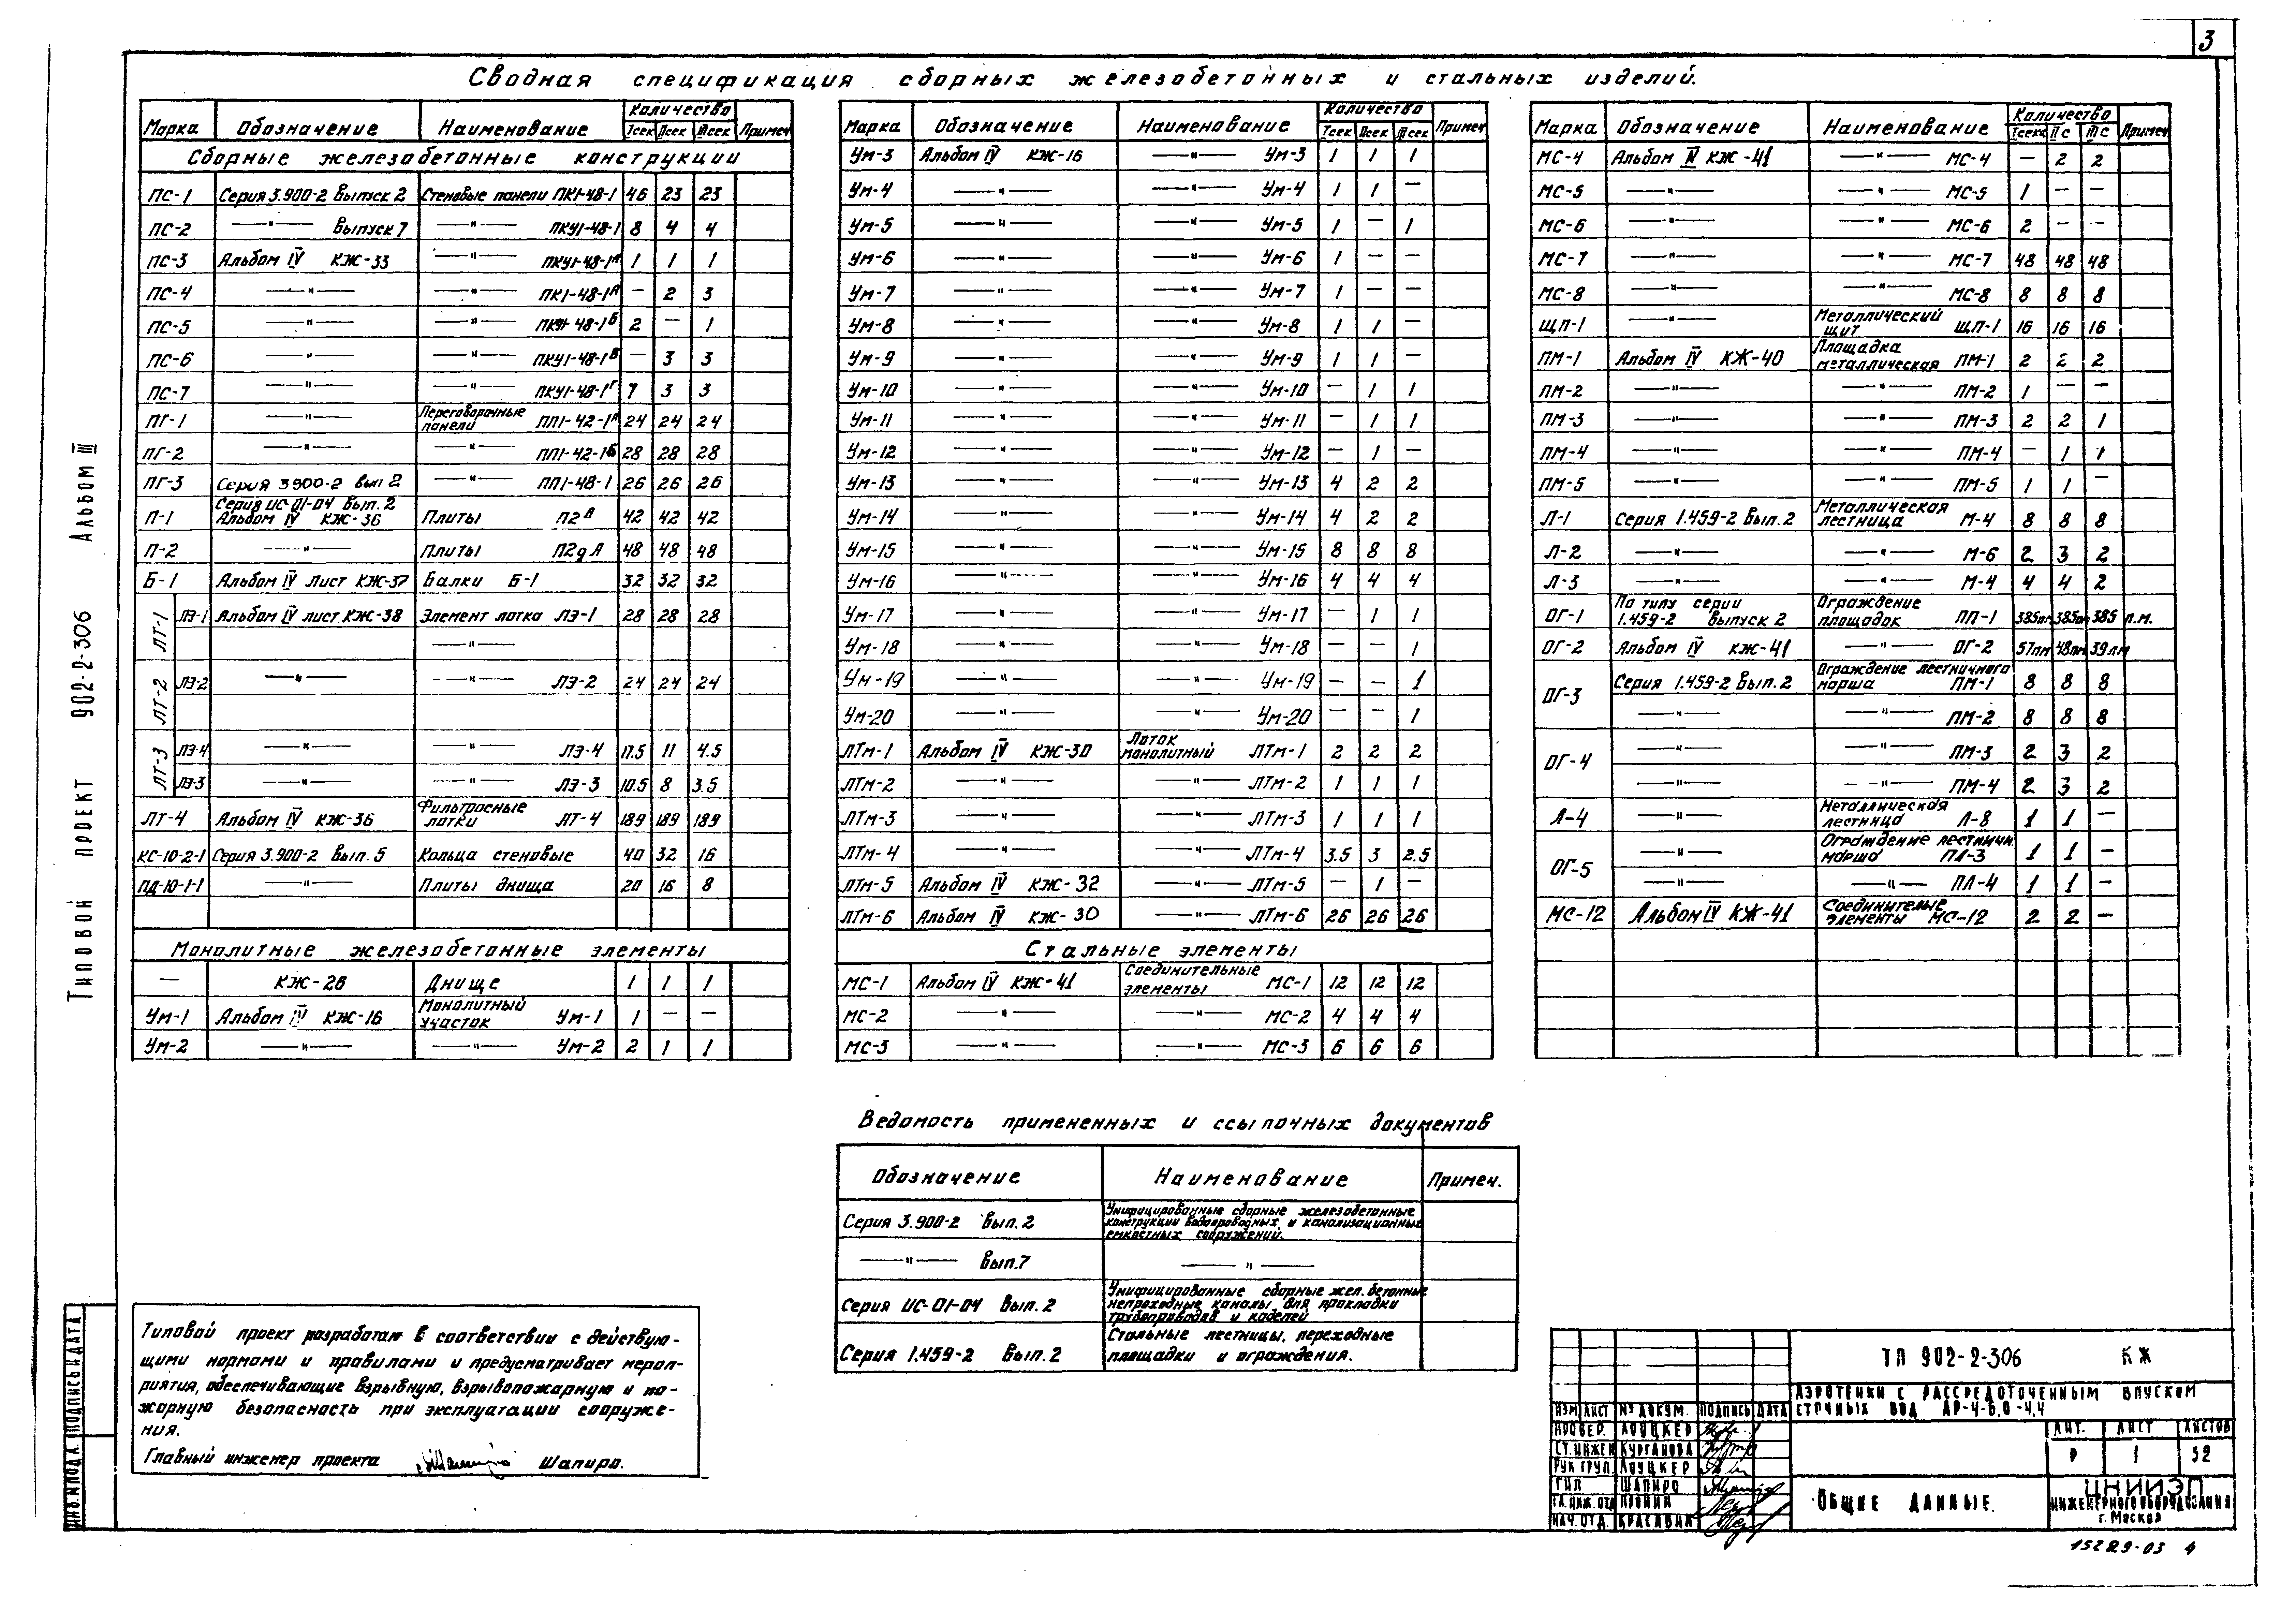 3
Сводная спецификация сборных железобетонных и стальных изделий.
Марка Обозначение Наименование Количество Примеч
Iсек IIсек IIIсек
Сборные железобетонные конструкции
ПС-1 Серия 3.900-2 Выпуск 2 Стеновые панели ПК1-48-1 46 23 23
ПС-2 —"— Выпуск 7 —"— ПКУ1-48-1 8 4 4
ПС-3 Альбом IV КЖ-33 —"— ПКУ1-48-1А 1 1 1
ПС-4 —"— —"— ПК1-48-1А — 2 3
ПС-5 —"— —"— 48-1Б 2 — 1
ПС-6 —"— —"— ПКУ1-48-1В — 3 3
ПС-7 —"— —"— ПКУ1-48-1Г 7 3 3
ПГ-1 —"— Перегородочные панели ПП1-42-1А 24 24 24
ПГ-2 —"— —"— ПП1-42-1Б 28 28 28
ПГ-3 Серия 3900-2 вып 2 —"— ПП1-48-1 26 26 26
П-1 Серия ИС-01-04 Вып. 2 Альбом IV КЖ-36 Плиты П2А 42 42 42
П-2 —"— Плиты П2дА 48 48 48
Б-1 Альбом IV Лист КЖ-37 Балки Б-1 32 32 32
ЛТ-1 ЛЭ-1 Альбом IV лист КЖ-38 Элемент лотка ЛЭ-1 28 28 28
—"—
ЛТ-2 ЛЭ-2 —"— —"— ЛЭ-2 24 24 24
ЛТ-3 ЛЭ-4 —"— —"— ЛЭ-4 17.5 11 4.5
ЛЭ-3 —"— —"— ЛЭ-3 10.5 8 3.5
ЛТ-4 Альбом IV КЖ-36 Фильтросные лотки ЛТ-4 189 189 189
КС-10-2-1 Серия 3.900-2 Вып. 5 Кольца стеновые 40 32 16
ПД-10-1-1 —"— Плиты днища 20 16 8
Монолитные железобетонные элементы
— КЖ-26 Днище 1 1 1
Ум-1 Альбом IV КЖ-16 Монолитный участок Ум-1 1 — —
Ум-2 —"— —"— Ум-2 2 1 1
Марка Обозначение Наименование Количество Примеч
Iсек IIсек IIIсек
Ум-3 Альбом IV КЖ-16 —"— Ум-3 1 1 1
Ум-4 —"— —"— Ум-4 1 1 —
Ум-5 —"— —"— Ум-5 1 — 1
Ум-6 —"— —"— Ум-6 1 — —
Ум-7 —"— —"— Ум-7 1 — —
Ум-8 —"— —"— Ум-8 1 1 —
Ум-9 —"— —"— Ум-9 1 1 —
Ум-10 —"— —"— Ум-10 — 1 1
Ум-11 —"— —"— Ум-11 — 1 1
Ум-12 —"— —"— Ум-12 — 1 —
Ум-13 —"— —"— Ум-13 4 2 2
Ум-14 —"— —"— Ум-14 4 2 2
Ум-15 —"— —"— Ум-15 8 8 8
Ум-16 —"— —"— Ум-16 4 4 4
Ум-17 —"— —"— Ум-17 — 1 1
Ум-18 —"— —"— Ум-18 — — 1
Ум-19 —"— —"— Ум-19 — — 1
Ум-20 —"— —"— Ум-20 — — 1
ЛТм-1 Альбом IV КЖ-30 Лоток монолитный ЛТм-1 2 2 2
ЛТм-2 —"— —"— ЛТм-2 1 1 1
ЛТм-3 —"— —"— ЛТм-3 1 1 1
ЛТм-4 —"— —"— ЛТм-4 3.5 3 2.5
ЛТм-5 Альбом IV КЖ-32 —"— ЛТм-5 — 1 —
ЛТм-6 Альбом IV КЖ-30 —"— ЛТм-6 26 26 26
Стальные элементы
МС-1 Альбом IV КЖ-41 Соединительные элементы МС-1 12 12 12
МС-2 —"— —"— МС-2 4 4 4
МС-3 —"— —"— МС-3 6 6 6
Марка Обозначение Наименование Количество Примеч
Iсек II с III с
МС-4 Альбом IV КЖ-41 —"— МС-4 — 2 2
МС-5 —"— —"— МС-5 1 — —
МС-6 —"— —"— МС-6 2 — —
МС-7 —"— —"— МС-7 48 48 48
МС-8 —"— —"— МС-8 8 8 8
ЩП-1 —"— Металлический щит ЩП-1 16 16 16
ПМ-1 Альбом IV КЖ-40 Площадка металлическая ПМ-1 2 2 2
ПМ-2 —"— —"— ПМ-2 1 — —
ПМ-3 —"— —"— ПМ-3 2 2 1
ПМ-4 —"— —"— ПМ-4 — 1 1
ПМ-5 —"— —"— ПМ-5 1 1 —
Л-1 Серия 1.459-2 Вып. 2 Металлическая лестница М-4 8 8 8
Л-2 —"— —"— М-6 2 3 2
Л-3 —"— —"— М-4 4 4 2
ОГ-1 По типу серии 1.459-2 выпуск 2 Ограждение площадок ПП-1 385пм 385пм 385 п.м.
ОГ-2 Альбом IV КЖ-41 —"— ОГ-2 57пм 48пм 39пм
ОГ-3 Серия 1.459-2 Вып. 2 Ограждение лестничного марша ПМ-1 8 8 8
—"— —"— ПМ-2 8 8 8
ОГ-4 —"— —"— ПМ-3 2 3 2
—"— —"— ПМ-4 2 3 2
Л-4 —"— Металлическая лестница Л-8 1 1 —
ОГ-5 —"— Ограждение лестничн марша ПЛ-3 1 1 —
—"— —"— ПЛ-4 1 1 —
МС-12 Альбом IV КЖ-41 Соединителые элементы МС-12 2 2 —
Ведомость примененных и ссылочных документов
Обозначение Наименование Примеч.
Серия 3.900-2 Вып. 2 Унифицированные сборные железобетонные
конструкции водопроводных и канализационных
емкостных сооружений.
—"— Вып.7 —"—
Серия ИС-01-04 Вып. 2 Унифицированные сборные жел.бетонные
непроходные каналы для прокладки
трубопроводов и кабелей
Серия 1.459-2 Вып. 2 Стальные лестницы, переходные
площадки и ограждения.
Типовой проект разработан в соответствии с действую-
щими нормами и правилами и предусматривает мероп-
риятия, обеспечивающие взрывную, взрывопожарную и по-
жарную безопасность при эксплуатации сооруже-
ния.
Главный инженер проекта Шапиро.
Типовой проект 902-2-306 Альбом III
Инв.№ подл. Подпись и дата
ТП 902-2-306 КЖ
Аэротенки с рассредоточенным впуском
сточных вод АР-4-6,0-4,4
Изм Лист № докум. Подпись Дата
Провер. Лоуцкер
Ст.инжен Курганова
Рук груп. Лоуцкер
ГИП Шапиро
Гл.инж.отд Пронин
Нач.отд. Красавин
Лит. Лист Листов
Р 1 32
Общие данные.
ЦНИИЭП
инженерного оборудования
г. Москва
15229-03 4